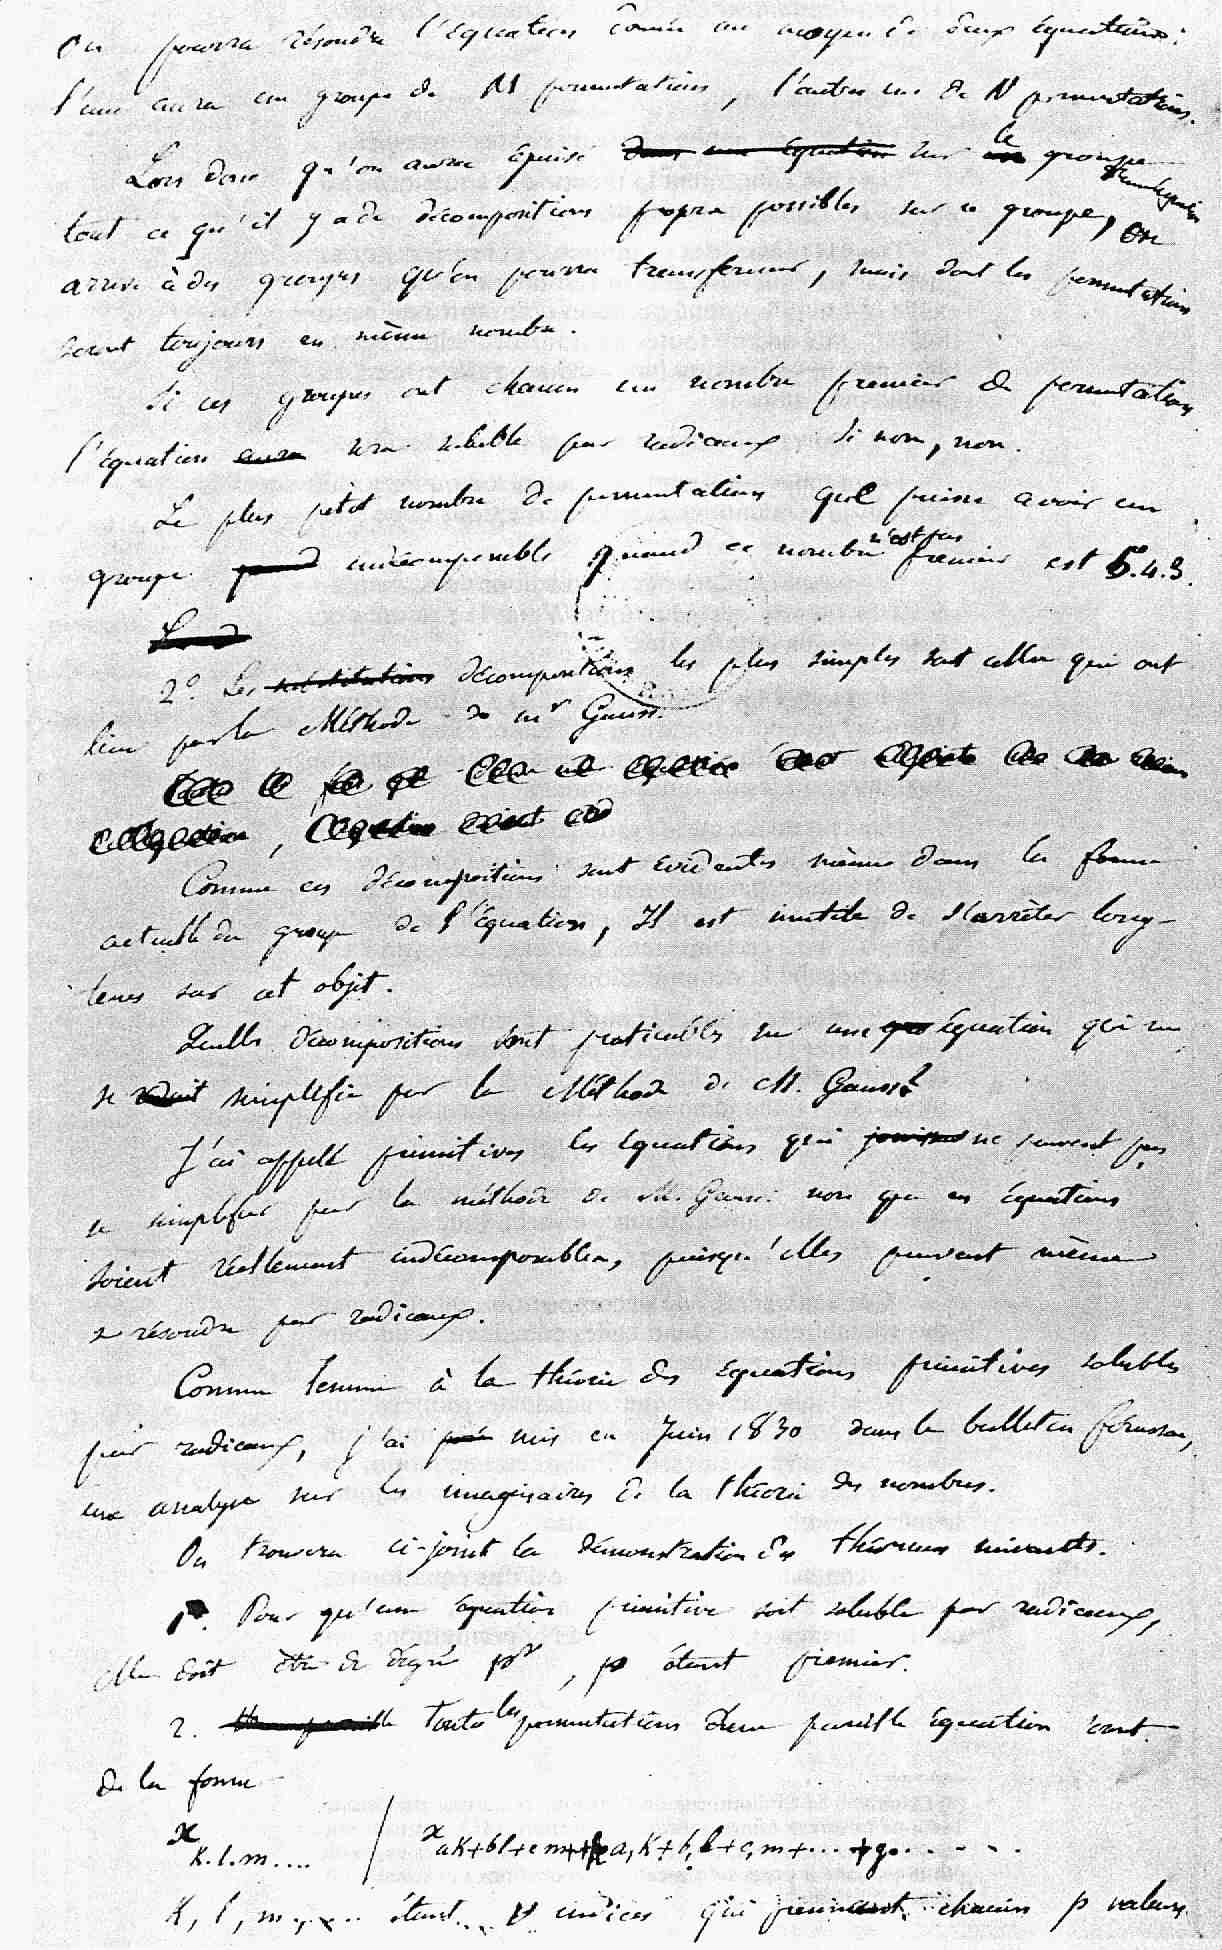 On pourra résoudre l'équation donnée au moyen de deux équations:
l'une aura un groupe de M permutations, l'autre un de N permutations.
Lors donc qu'on aura épuisé dans une équation sur un le groupe
d'une équation
tout ce qu'il y a de décompositions propre possibles sur ce groupe, on
arrive à des groupes qu'on pourra transformer, mais dont les permutations
seront toujours en même nombre.
Si ces groupes ont chacun un nombre premier de permutations
l'équation aura sera soluble par radicaux. Si non, non.
Le plus petit nombre de permutations que puisse avoir un
groupe indécomposable quand ce nombre n'est pas premier est 5.4.3.
2º Les substitutions décompositions les plus simples sont celles qui ont
lieu par la Méthode de mr Gauss.
Comme ces décompositions sont évidentes même dans la forme
actuelle du groupe de l'équation, Il est inutile de s'arrêter long-
tems sur cet objet.
Quelles décompositions sont praticables sur une équation qui ne
se réduit simplifie par la Méthode de M. Gauss?
J'ai appellé primitives les équations qui jouissent ne peuvent pas
se simplifier par la méthode de M. Gauss: non que ces équations
soient réellement indécomposables, puisqu'elles peuvent même
se résoudre par radicaux.
Comme lemme à la théorie des équations primitives solubles
par radicaux, j'ai mis en Juin 1830 dans le bulletin férussac,
une analyse sur les imaginaires de la théorie des nombres.
On trouvera ci-joint la démonstration des théorèmes suivants.
1º. Pour qu'une équation primitive soit soluble par radicaux,
elle doit être de degré p^ν, p étant premier.
2. Toutes les permutations d'une pareille équation sont
de la forme
x k.l.m.... / x ak+bl+cm+...+f, a,k+b,l+c,m+...+g.......
k, l, m..... étant ν indices qui prennent chacun p valeurs